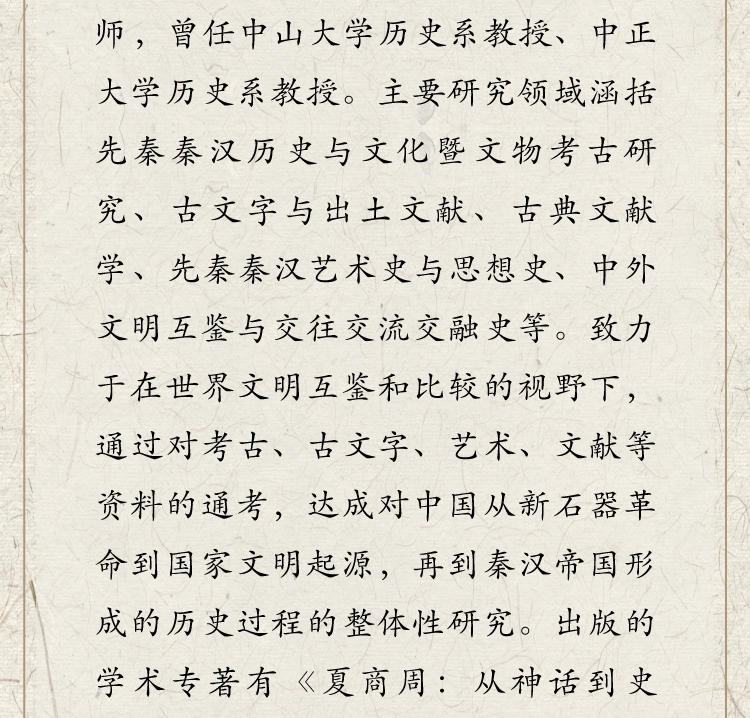 师，曾任中山大学历史系教授、中正
大学历史系教授。主要研究领域涵括
先秦秦汉历史与文化暨文物考古研
究、古文字与出土文献、古典文献
学、先秦秦汉艺术史与思想史、中外
文明互鉴与交往交流交融史等。致力
于在世界文明互鉴和比较的视野下，
通过对考古、古文字、艺术、文献等
资料的通考，达成对中国从新石器革
命到国家文明起源，再到秦汉帝国形
成的历史过程的整体性研究。出版的
学术专著有《夏商周：从神话到史